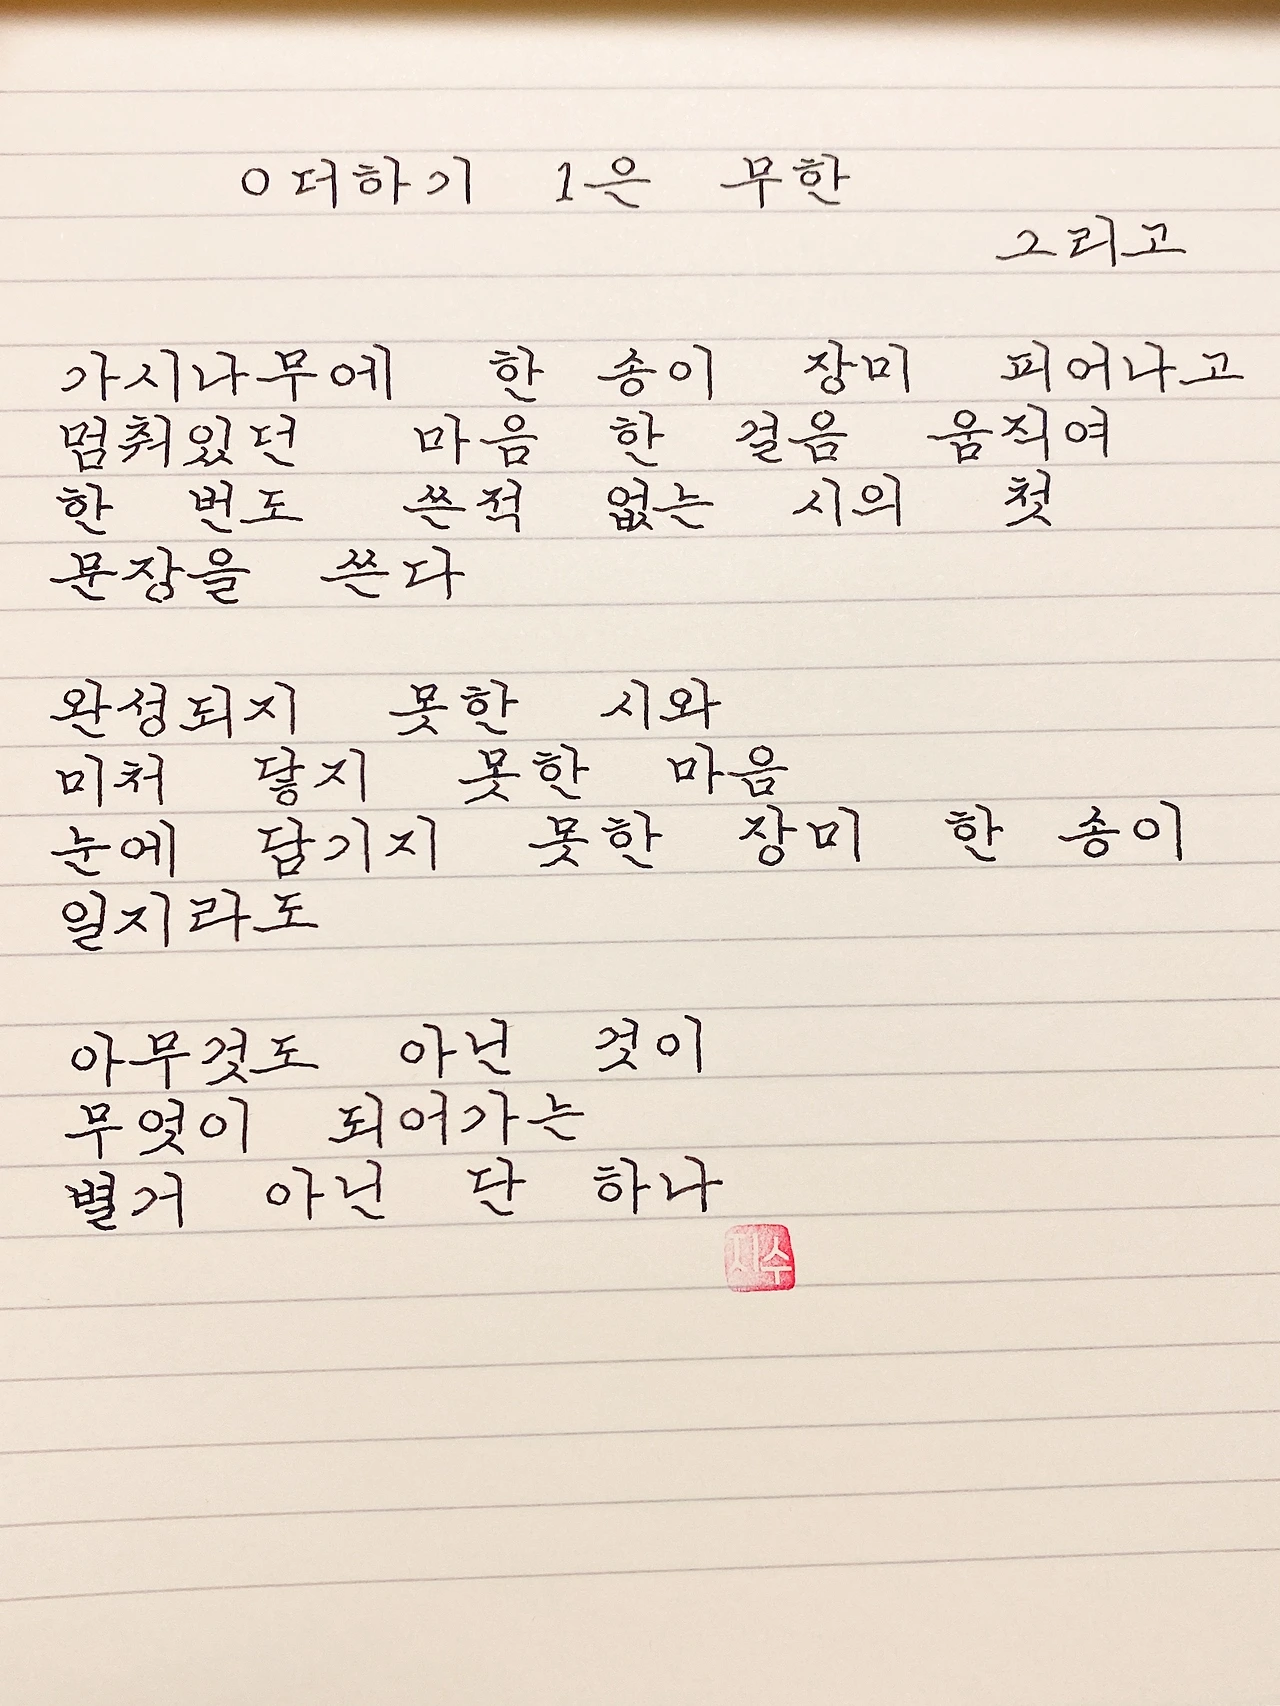 0더하기 1은 무한
그리고
가시나무에 한 송이 장미 피어나고
멈춰있던 마음 한 걸음 움직여
한 번도 쓴적 없는 시의 첫
문장을 쓴다
완성되지 못한 시와
미처 닿지 못한 마음
눈에 담기지 못한 장미 한 송이
일지라도
아무것도 아닌 것이
무엇이 되어가는
별거 아닌 단 하나
지수